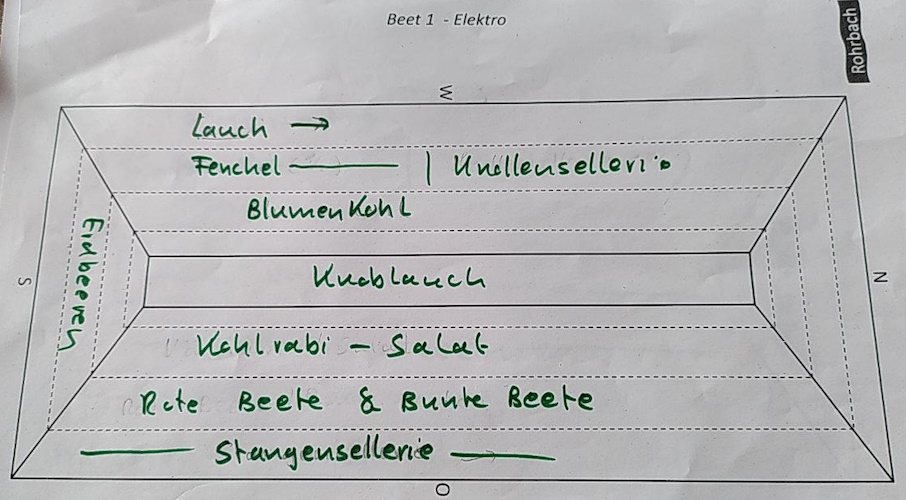 Beet 1 - Elektro
Rohrbach
W
Lauch →
Fenchel — | Knollensellerie
Blumenkohl
Erdbeeren
S
Knoblauch
N
Kohlrabi - Salat
Rote Beete & Bunte Beete
— Stangensellerie —
O